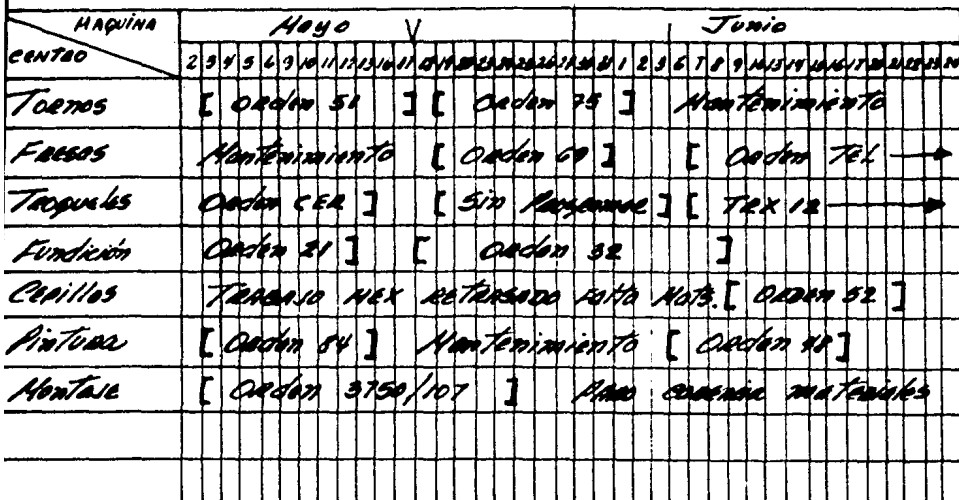 MAQUINA Mayo V Junio
CENTRO 2 3 4 5 6 9 10 11 12 13 16 17 18 19 20 23 24 25 26 27 30 31 1 2 3 6 7 8 9 10 13 14 15 16 17 20 21 22 23 24
Tornos [ Orden 51 ] [ Orden 75 ] Mantenimiento
Fresas Mantenimiento [ Orden 69 ] [ Orden TEL
Troqueles Orden CER ] [ Sin Programar ] [ TEX 12
Fundición Orden 21 ] [ Orden 32 ]
Cepillos TRABAJO MEX RETRASADO Falta Mats. [ ORDEN 52 ]
Pintura [ Orden 84 ] Mantenimiento [ Orden 48 ]
Montaje [ Orden 3750/107 ] PARO materiales